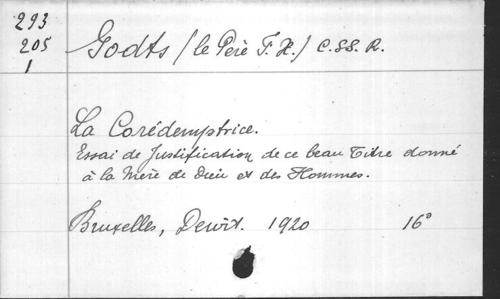 293
205
1
Godts (le Père F. X.) C.SS.R.
La Corédemptrice.
Essai de Justification de ce beau Titre donné
à la Mère de Dieu et des Hommes.
Bruxelles, Dewit. 1920 16°